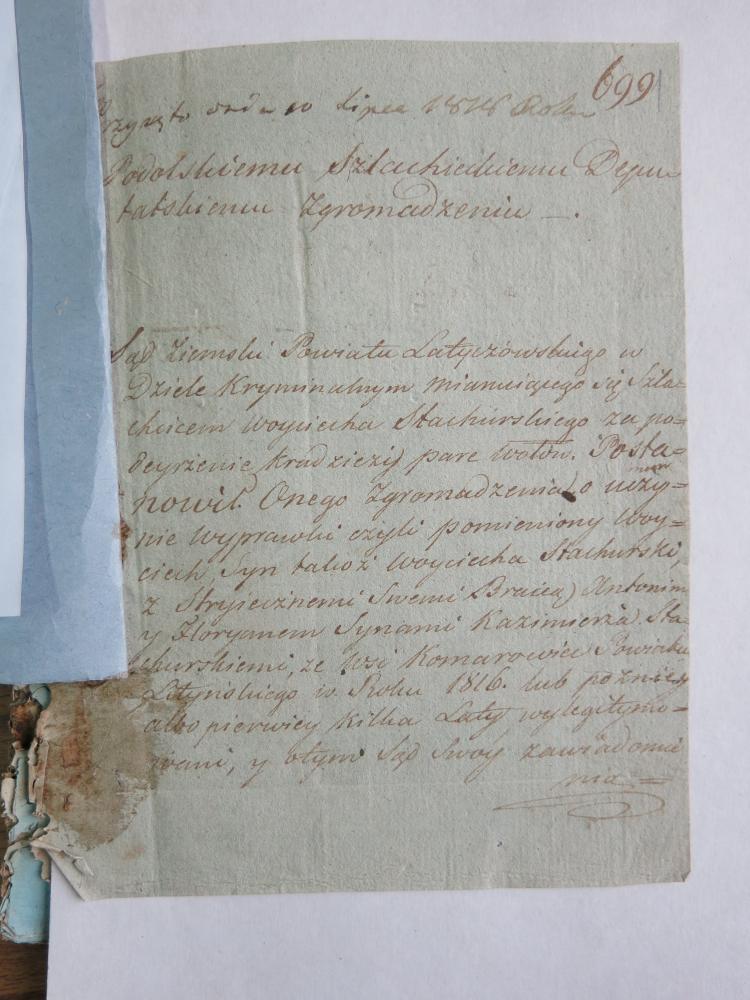 699
Przyięto dnia 10 Lipca 1818 Roku
Podolskiemu Szlachieckiemu Depu
tatskiemu Zgromadzeniu —.
Sąd Ziemski Powiatu Latyczówskiego w
Dziele Kryminalnym mianuiącego się Szla=
chcicem Woyciecha Stachurskiego za po=
deyrzenie kradzieży pare wołów. Posta=
nowił. Onego Zgromadzenia o uczy=
nie wyprawki czyli pomieniony Woy=
ciech, Syn takoż Woyciecha Stachurski,
z Stryiecznemi Swemi Bracią Antonim
y Floryanem Synami Kazimierza Sta=
churskiemi, ze Wsi Komarowiec Powiatu
Latyńskiego w Roku 1816. lub pozniey
albo pierwiey kilka Laty wylegitymo=
wani, y otym Sąd Swoy zawiadomie
nia =